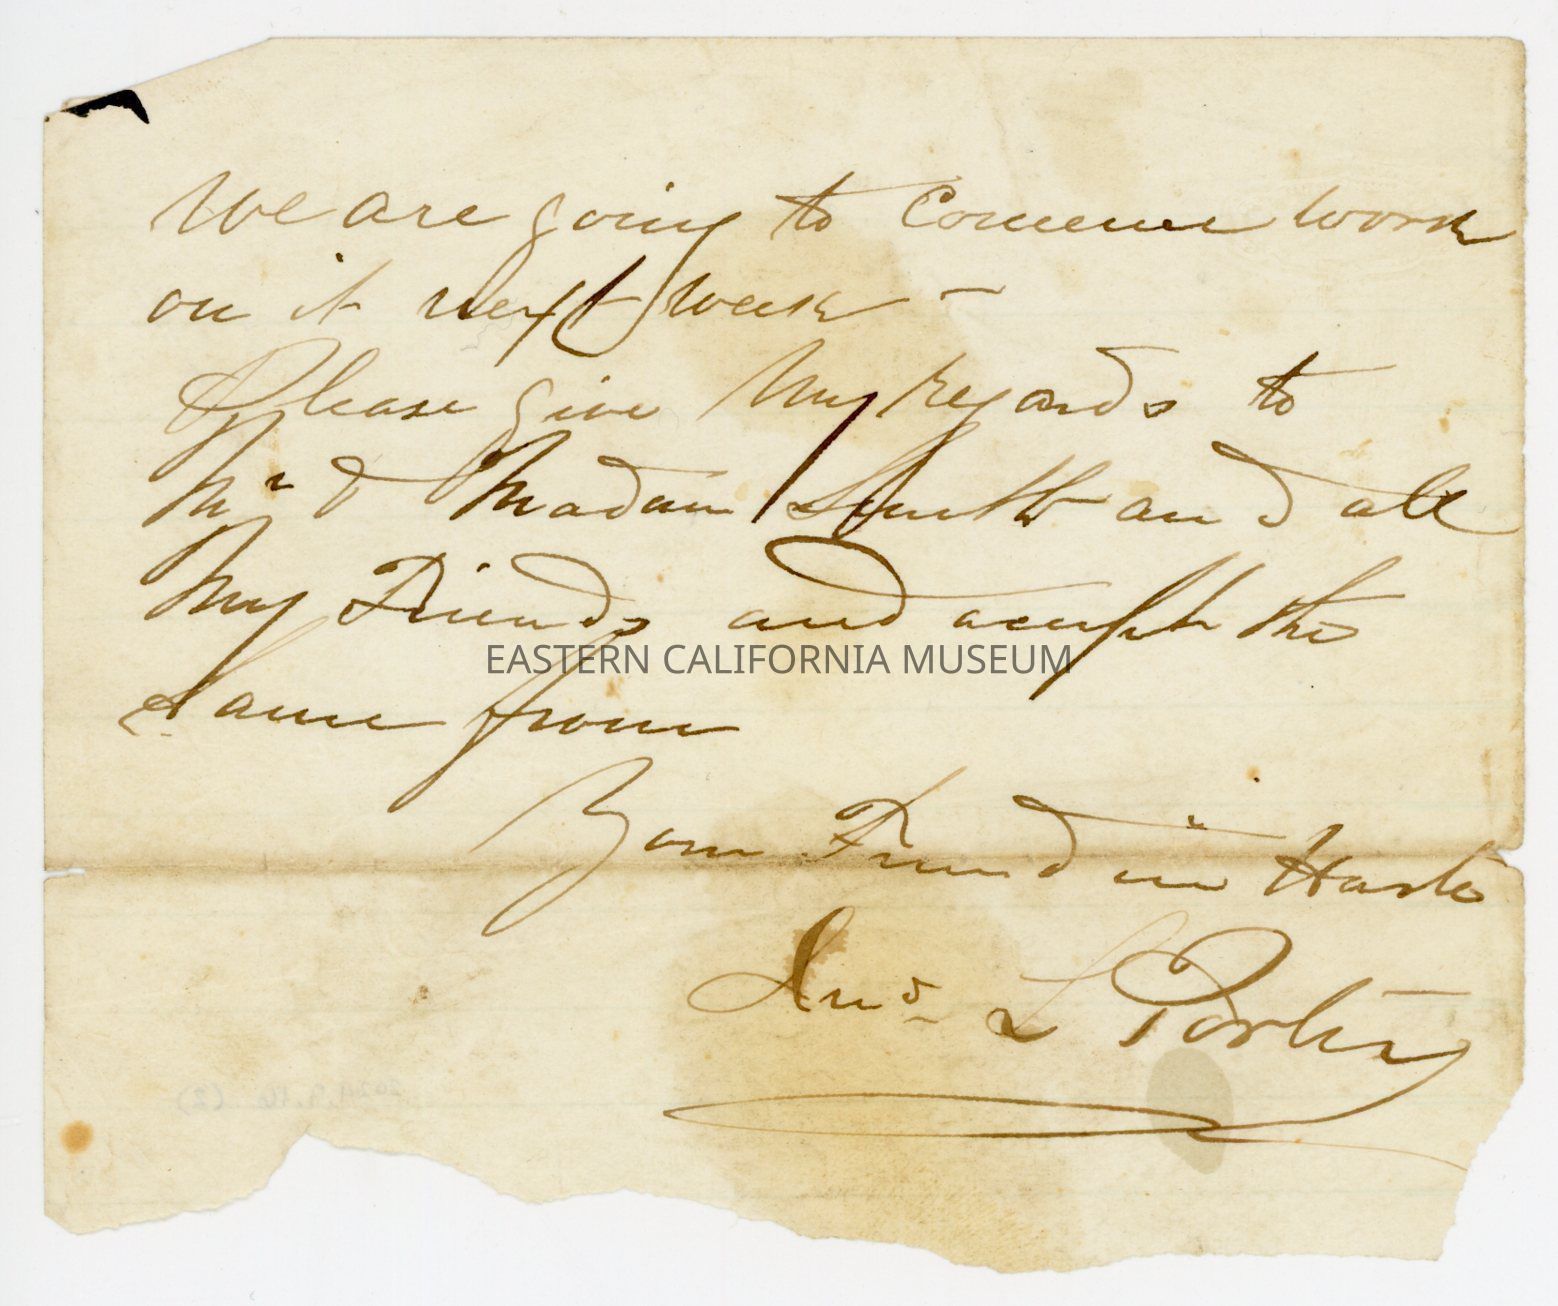 We are going to Comence work
on it next week –
Please give my regards to
Mr & Madam Smith and all
my Friends and accept the
Same from
EASTERN CALIFORNIA MUSEUM
Your Friend in Haste
Jno L Porter